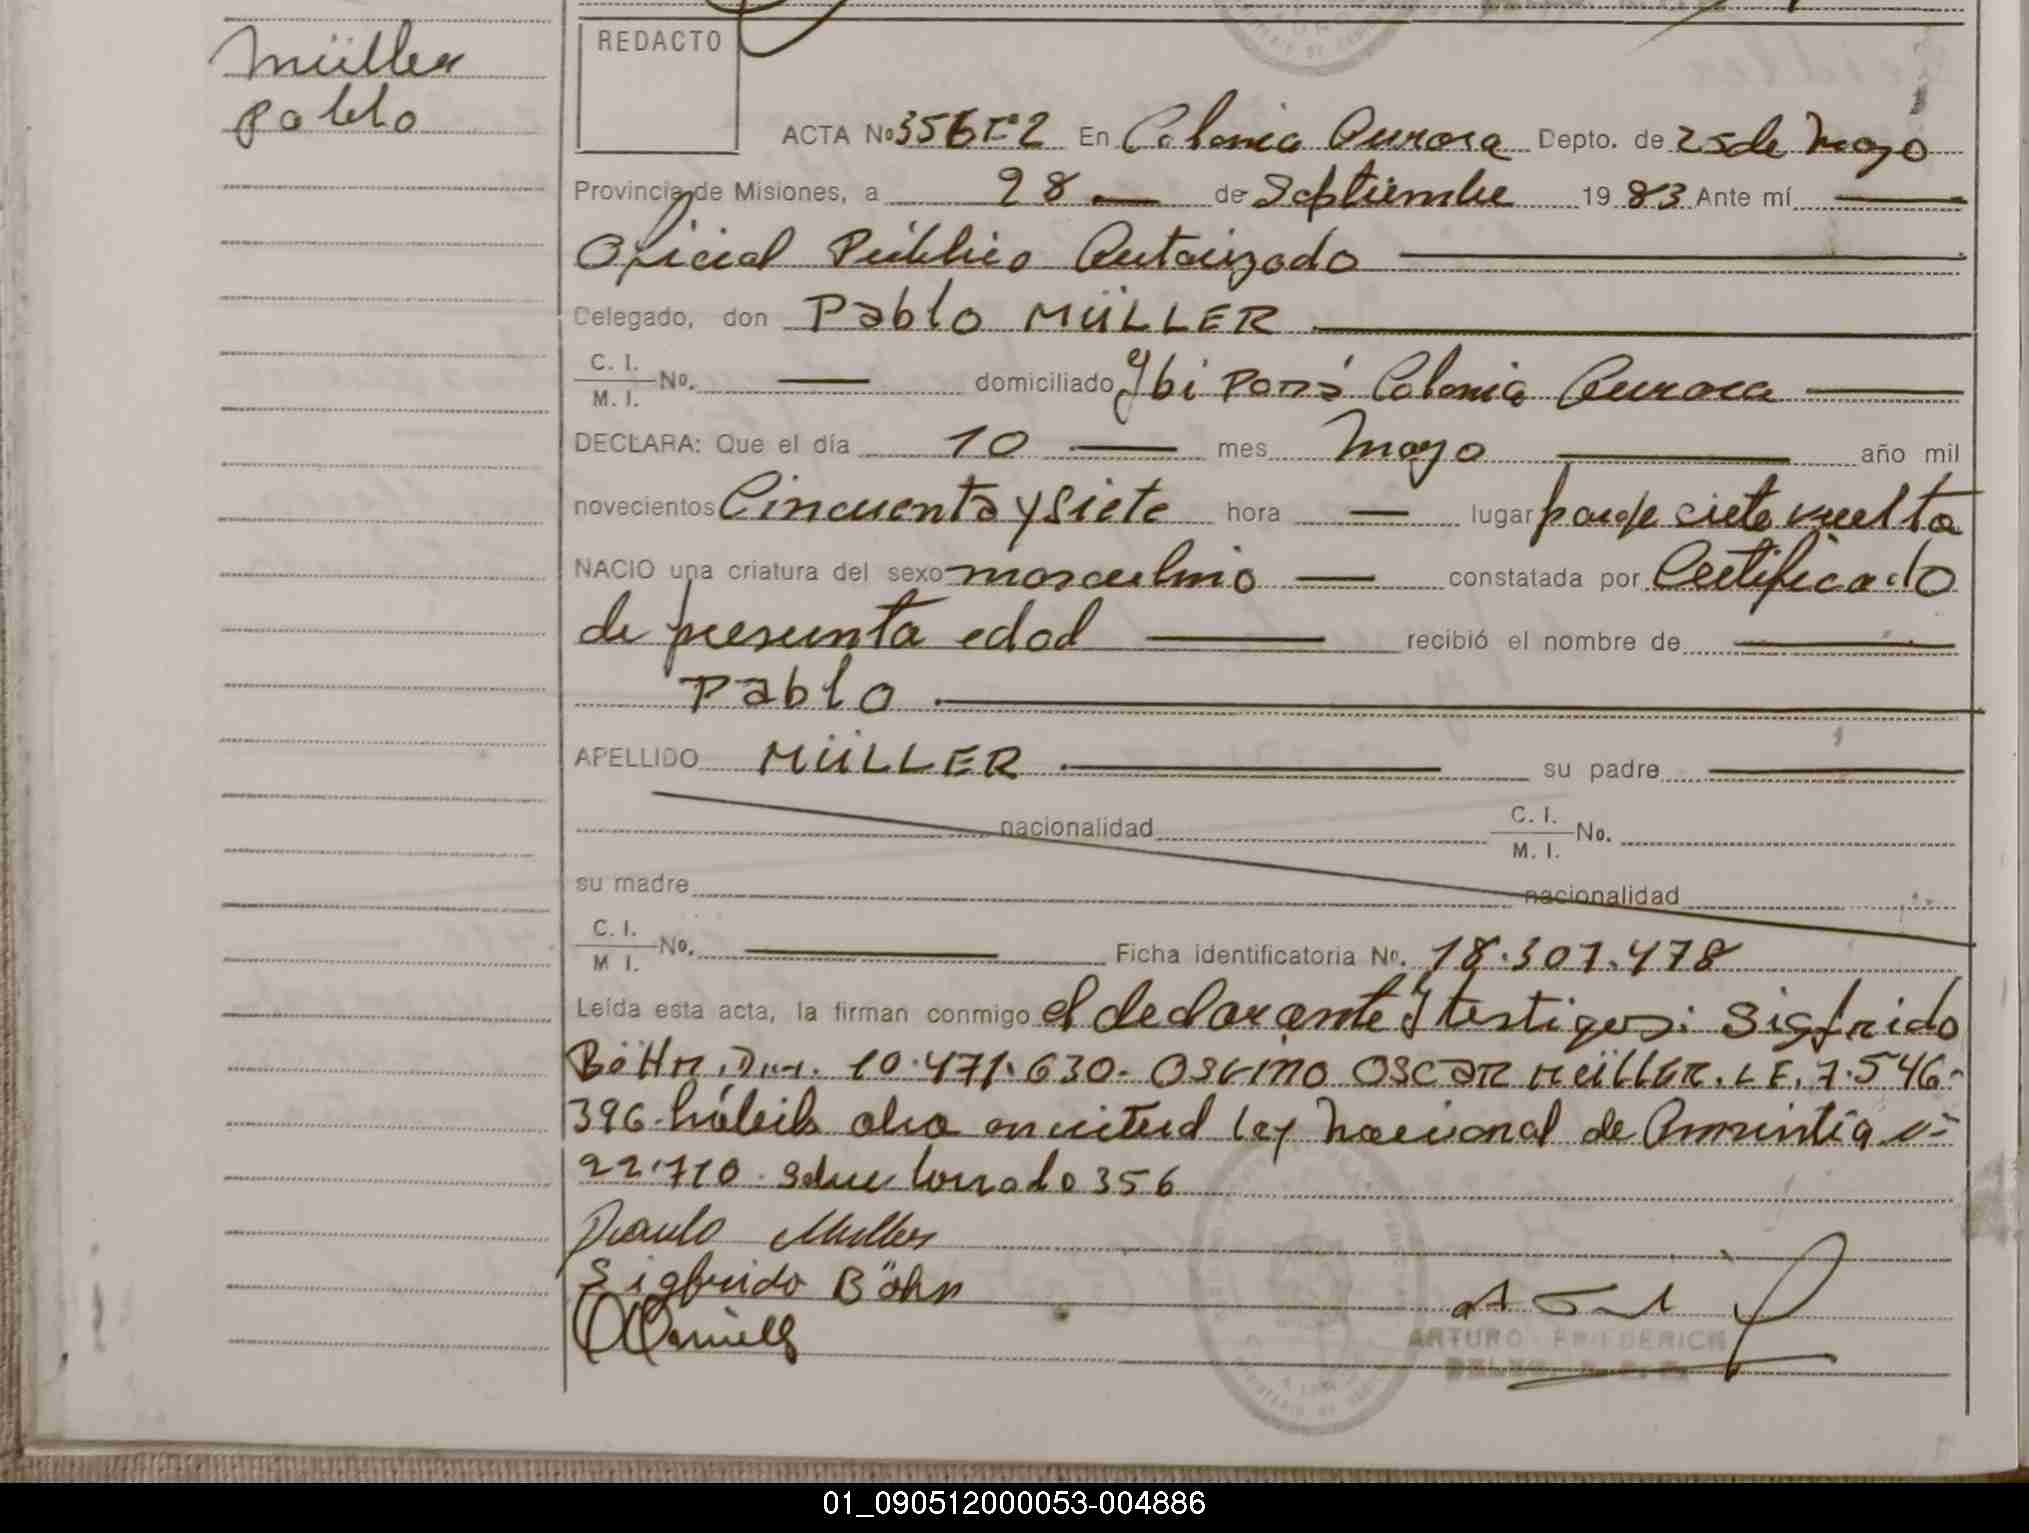 Müller
Pablo
REDACTO
ACTA No 356 Tº 2 En Colonia Aurora Depto. de 25 de Mayo
Provincia de Misiones, a 28 — de Septiembre 1983 Ante mí —
Oficial Público Autorizado —
Delegado, don Pablo MÜLLER —
C. I.
M. I. No. — domiciliado Ybi Porá Colonia Aurora —
DECLARA: Que el día 10 — mes Mayo — año mil
novecientos Cincuenta y Siete hora — lugar paraje siete vuelta
NACIO una criatura del sexo masculino — constatada por Certificado
de presunta edad — recibió el nombre de —
Pablo —
APELLIDO MÜLLER — su padre —
nacionalidad C. I.
M. I. No.
su madre nacionalidad
C. I.
M I. No. — Ficha identificatoria No. 18.307.478
Leída esta acta, la firman conmigo el declarante y testigos: Sigfrido
BöHN, 10.471.630- OSCAR MüLLER. L E. 7.546-
396- ley Nacional de Amnistía
22.710. Sobre borrado 356
Paulo Muller
Sigfrido Böhn
ARTURO FRIEDERICH
01_090512000053-004886